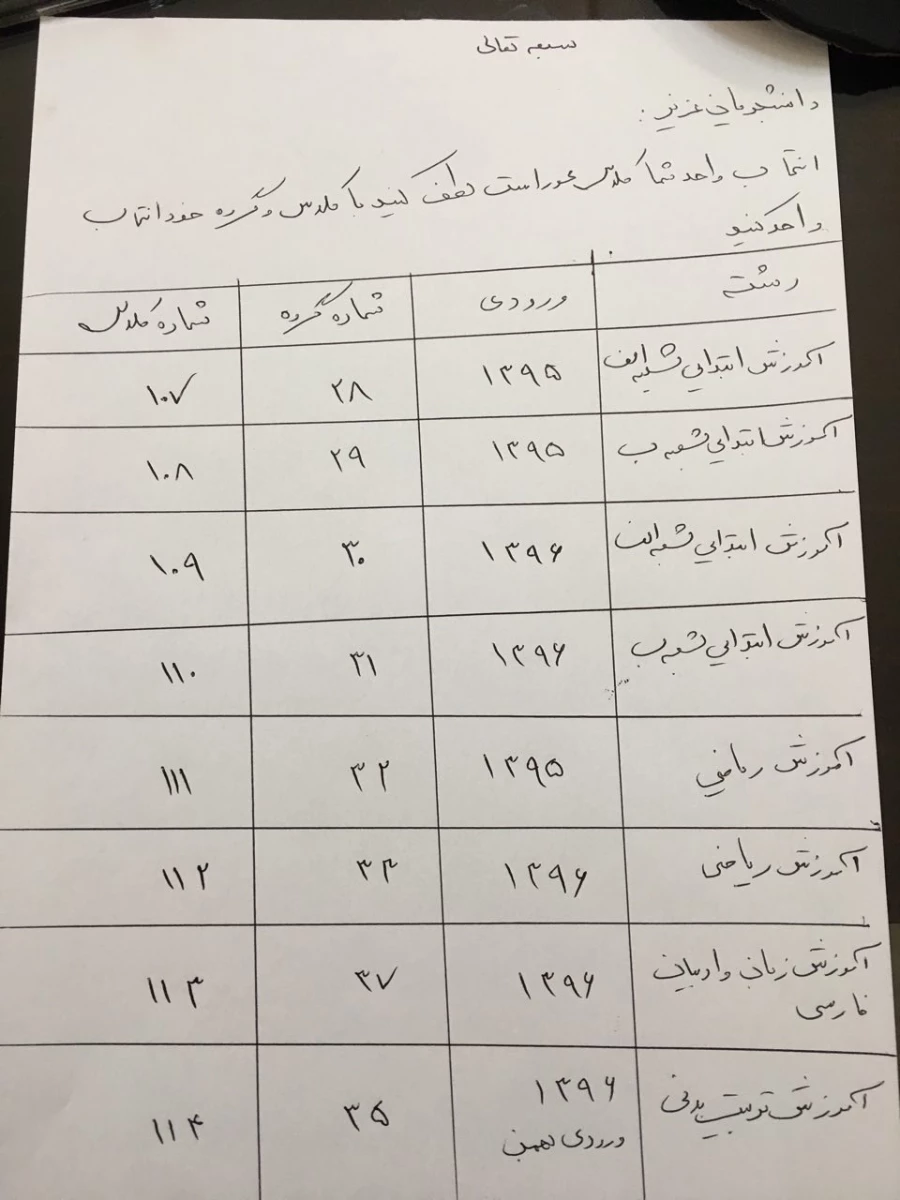 بسمه تعالی
دانشجویان عزیز:
انتخاب واحد شما کلاس محور است لطف کنید با کلاس و گروه خود انتخاب
واحد کنید
رشته ورودی شماره گروه شماره کلاس
آموزش ابتدایی شعبه الف ۱۳۹۵ ۲۸ ۱۰۷
آموزش ابتدایی شعبه ب ۱۳۹۵ ۲۹ ۱۰۸
آموزش ابتدایی شعبه الف ۱۳۹۶ ۳۰ ۱۰۹
آموزش ابتدایی شعبه ب ۱۳۹۶ ۳۱ ۱۱۰
آموزش ریاضی ۱۳۹۵ ۳۲ ۱۱۱
آموزش ریاضی ۱۳۹۶ ۳۳ ۱۱۲
آموزش زبان و ادبیات ۱۳۹۶ ۳۷ ۱۱۳
فارسی
آموزش تربیت بدنی ۱۳۹۶ ۳۵ ۱۱۴
ورودی بهمن